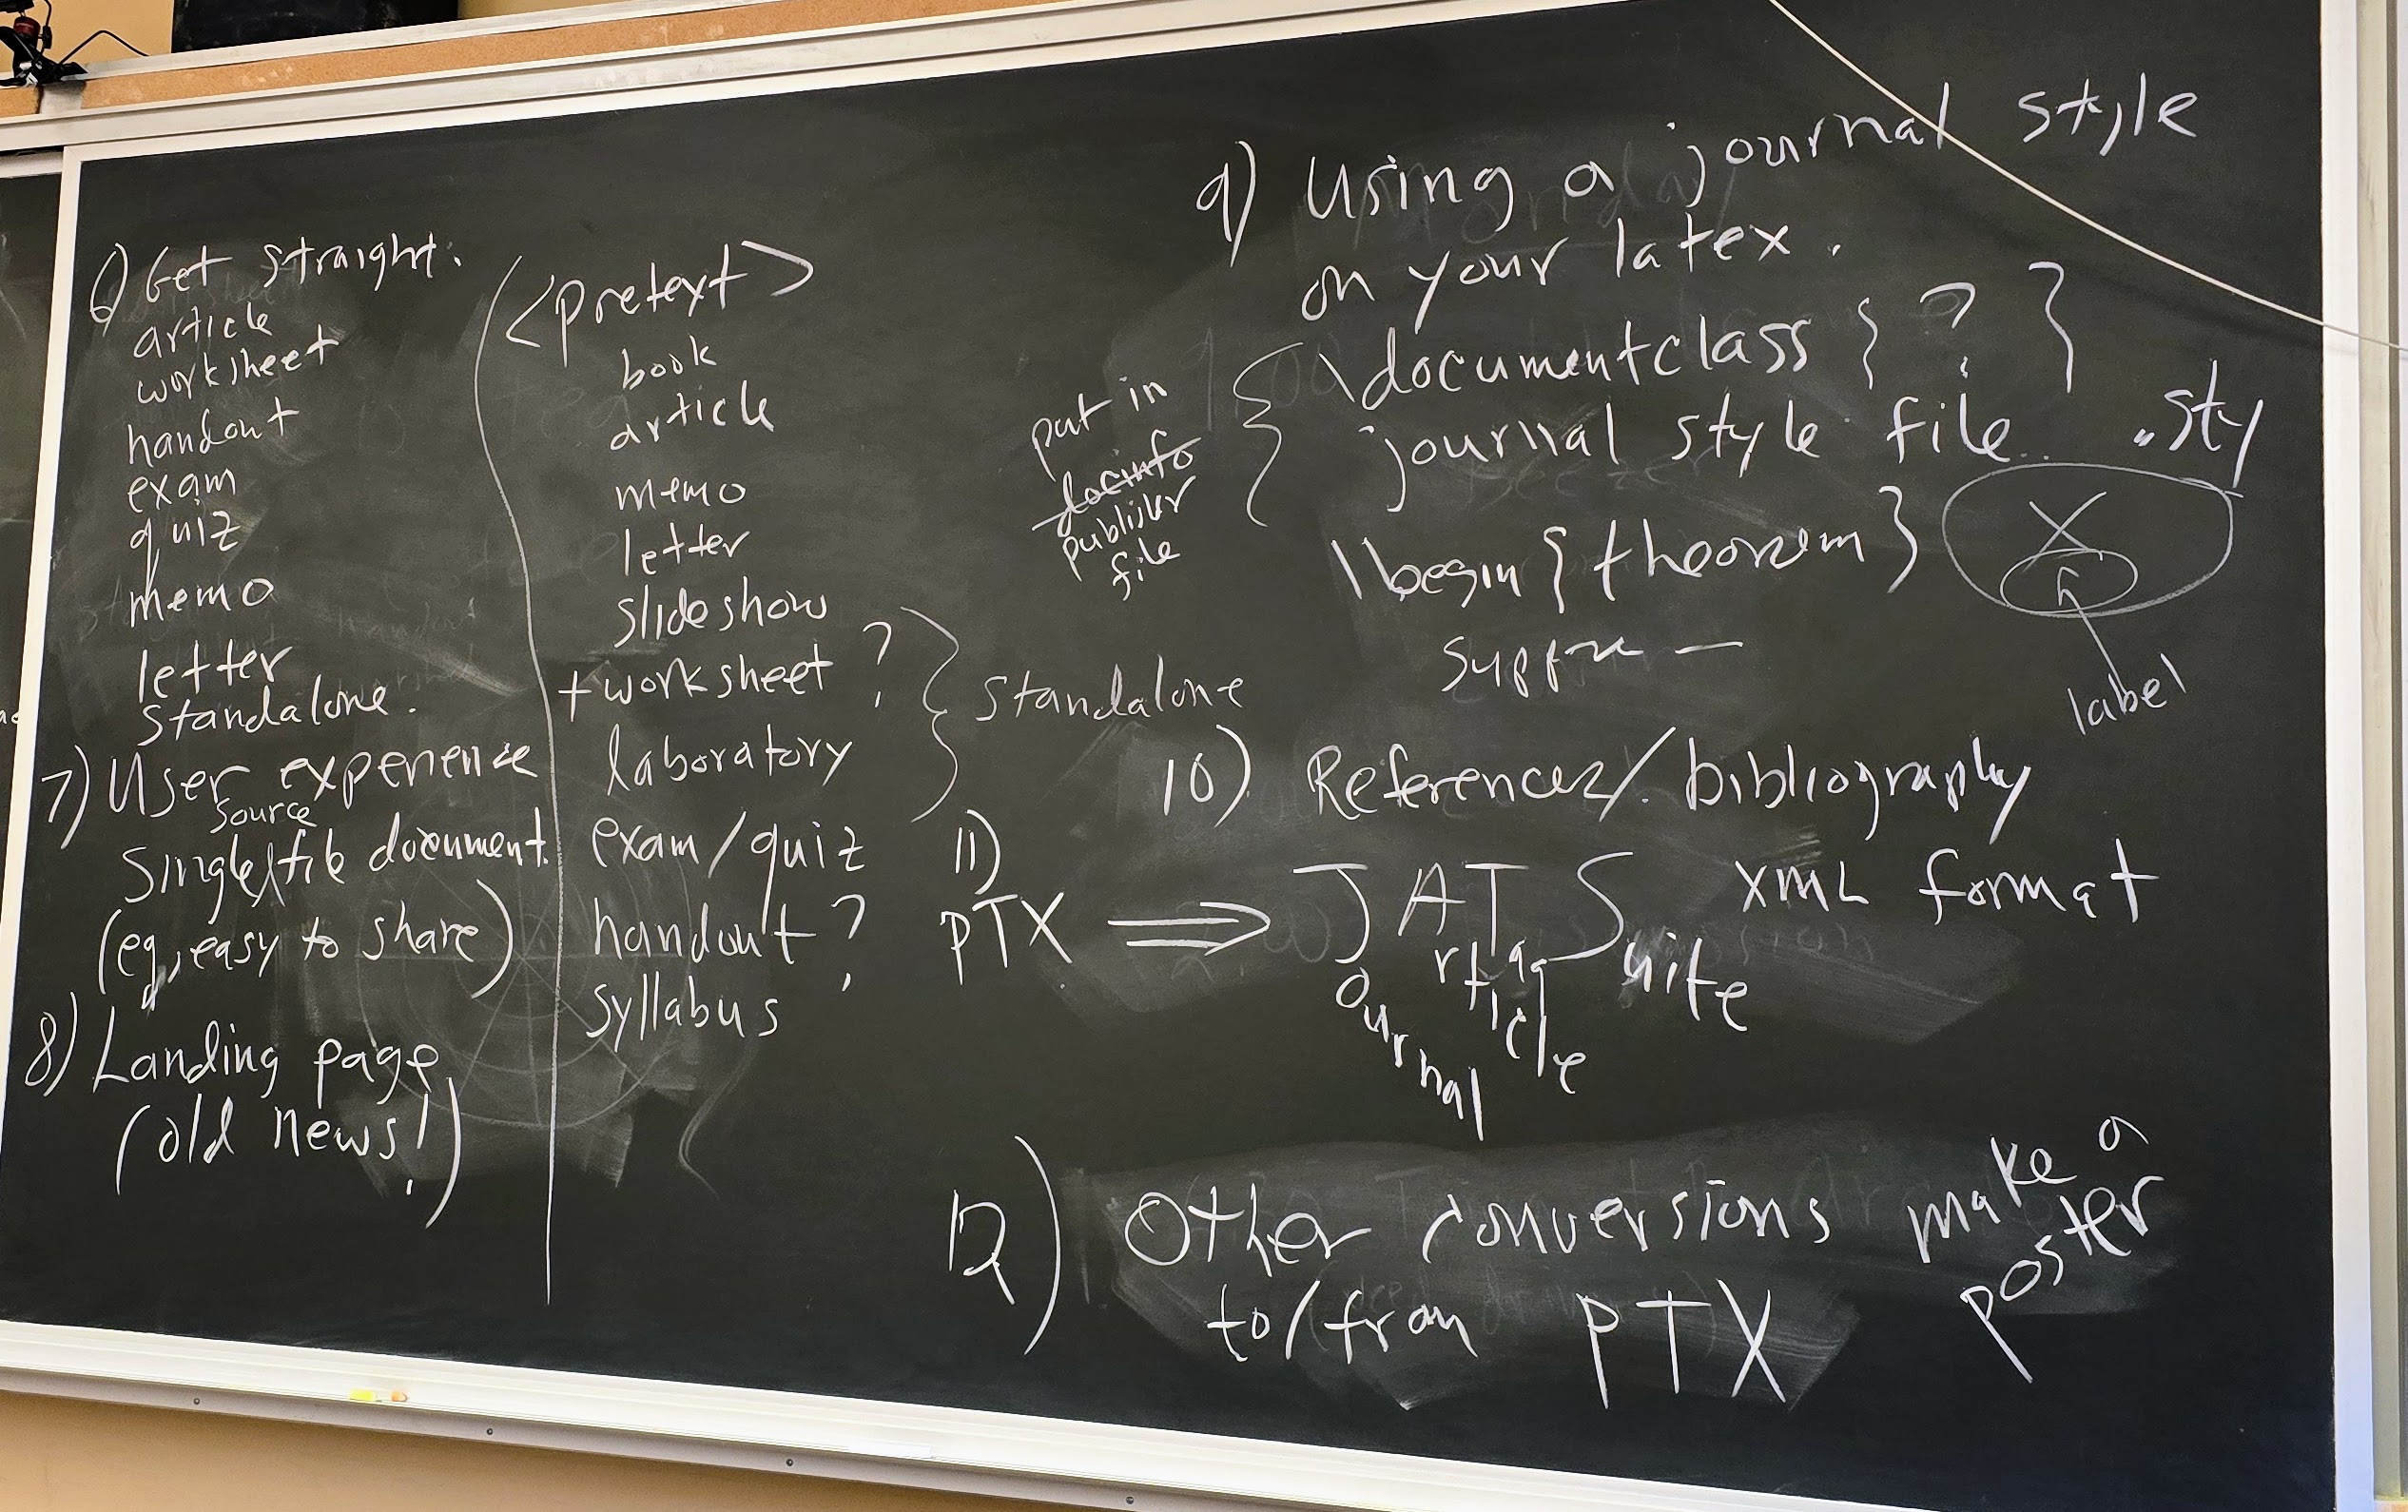 6) Get straight:
article
worksheet
handout
exam
quiz
memo
letter
standalone.
7) User experience
source
Single file document.
(eg, easy to share)
8) Landing page
(old news!)
<pretext>
book
article
memo
letter
slideshow
+ worksheet ?
laboratory
standalone
exam/quiz
handout ?
syllabus
9) Using a journal style
on your latex.
\documentclass { ? }
journal style file .sty
put in
docinfo
publisher
file
\begin {theorem}
X
label
10) References/bibliography
11)
PTX ⇒ JATS XML format
Journal
Article
Tag
Suite
12) Other conversions
to/from PTX
make a
poster